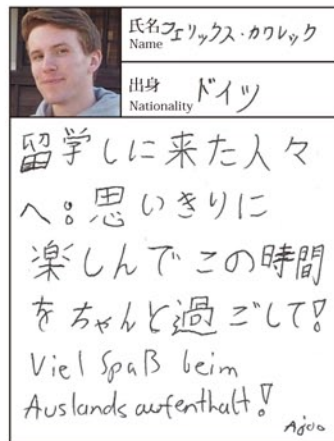 氏名
Name
フェリックス・カワレック
出身
Nationality
ドイツ
留学しに来た人々
へ:思いきりに
楽しんでこの時間
をちゃんと過ごして!
Viel Spaß beim
Auslandsaufenthalt!